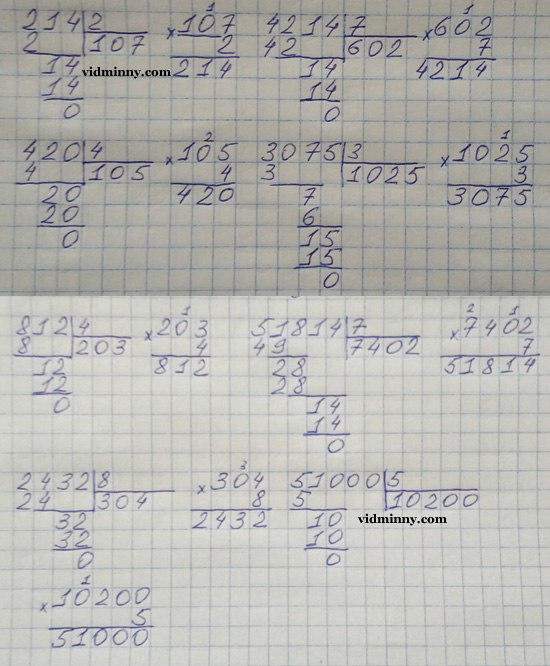 214|2 ×107 4214|7 ×602
2 |107 2 42 |602 7
14 vidminny.com 214 14 4214
14 14
0 0
420|4 ×105 3075|3 ×1025
4 |105 4 3 |1025 3
20 420 7 3075
20 6
0 15
15
0
812|4 ×203 51814|7 ×7402
8 |203 4 49 |7402 7
12 812 28 51814
12 28
0 14
14
0
2432|8 ×304 51000|5
24 |304 8 5 |10200
32 2432 10 vidminny.com
32 10
0 0
×10200
5
51000